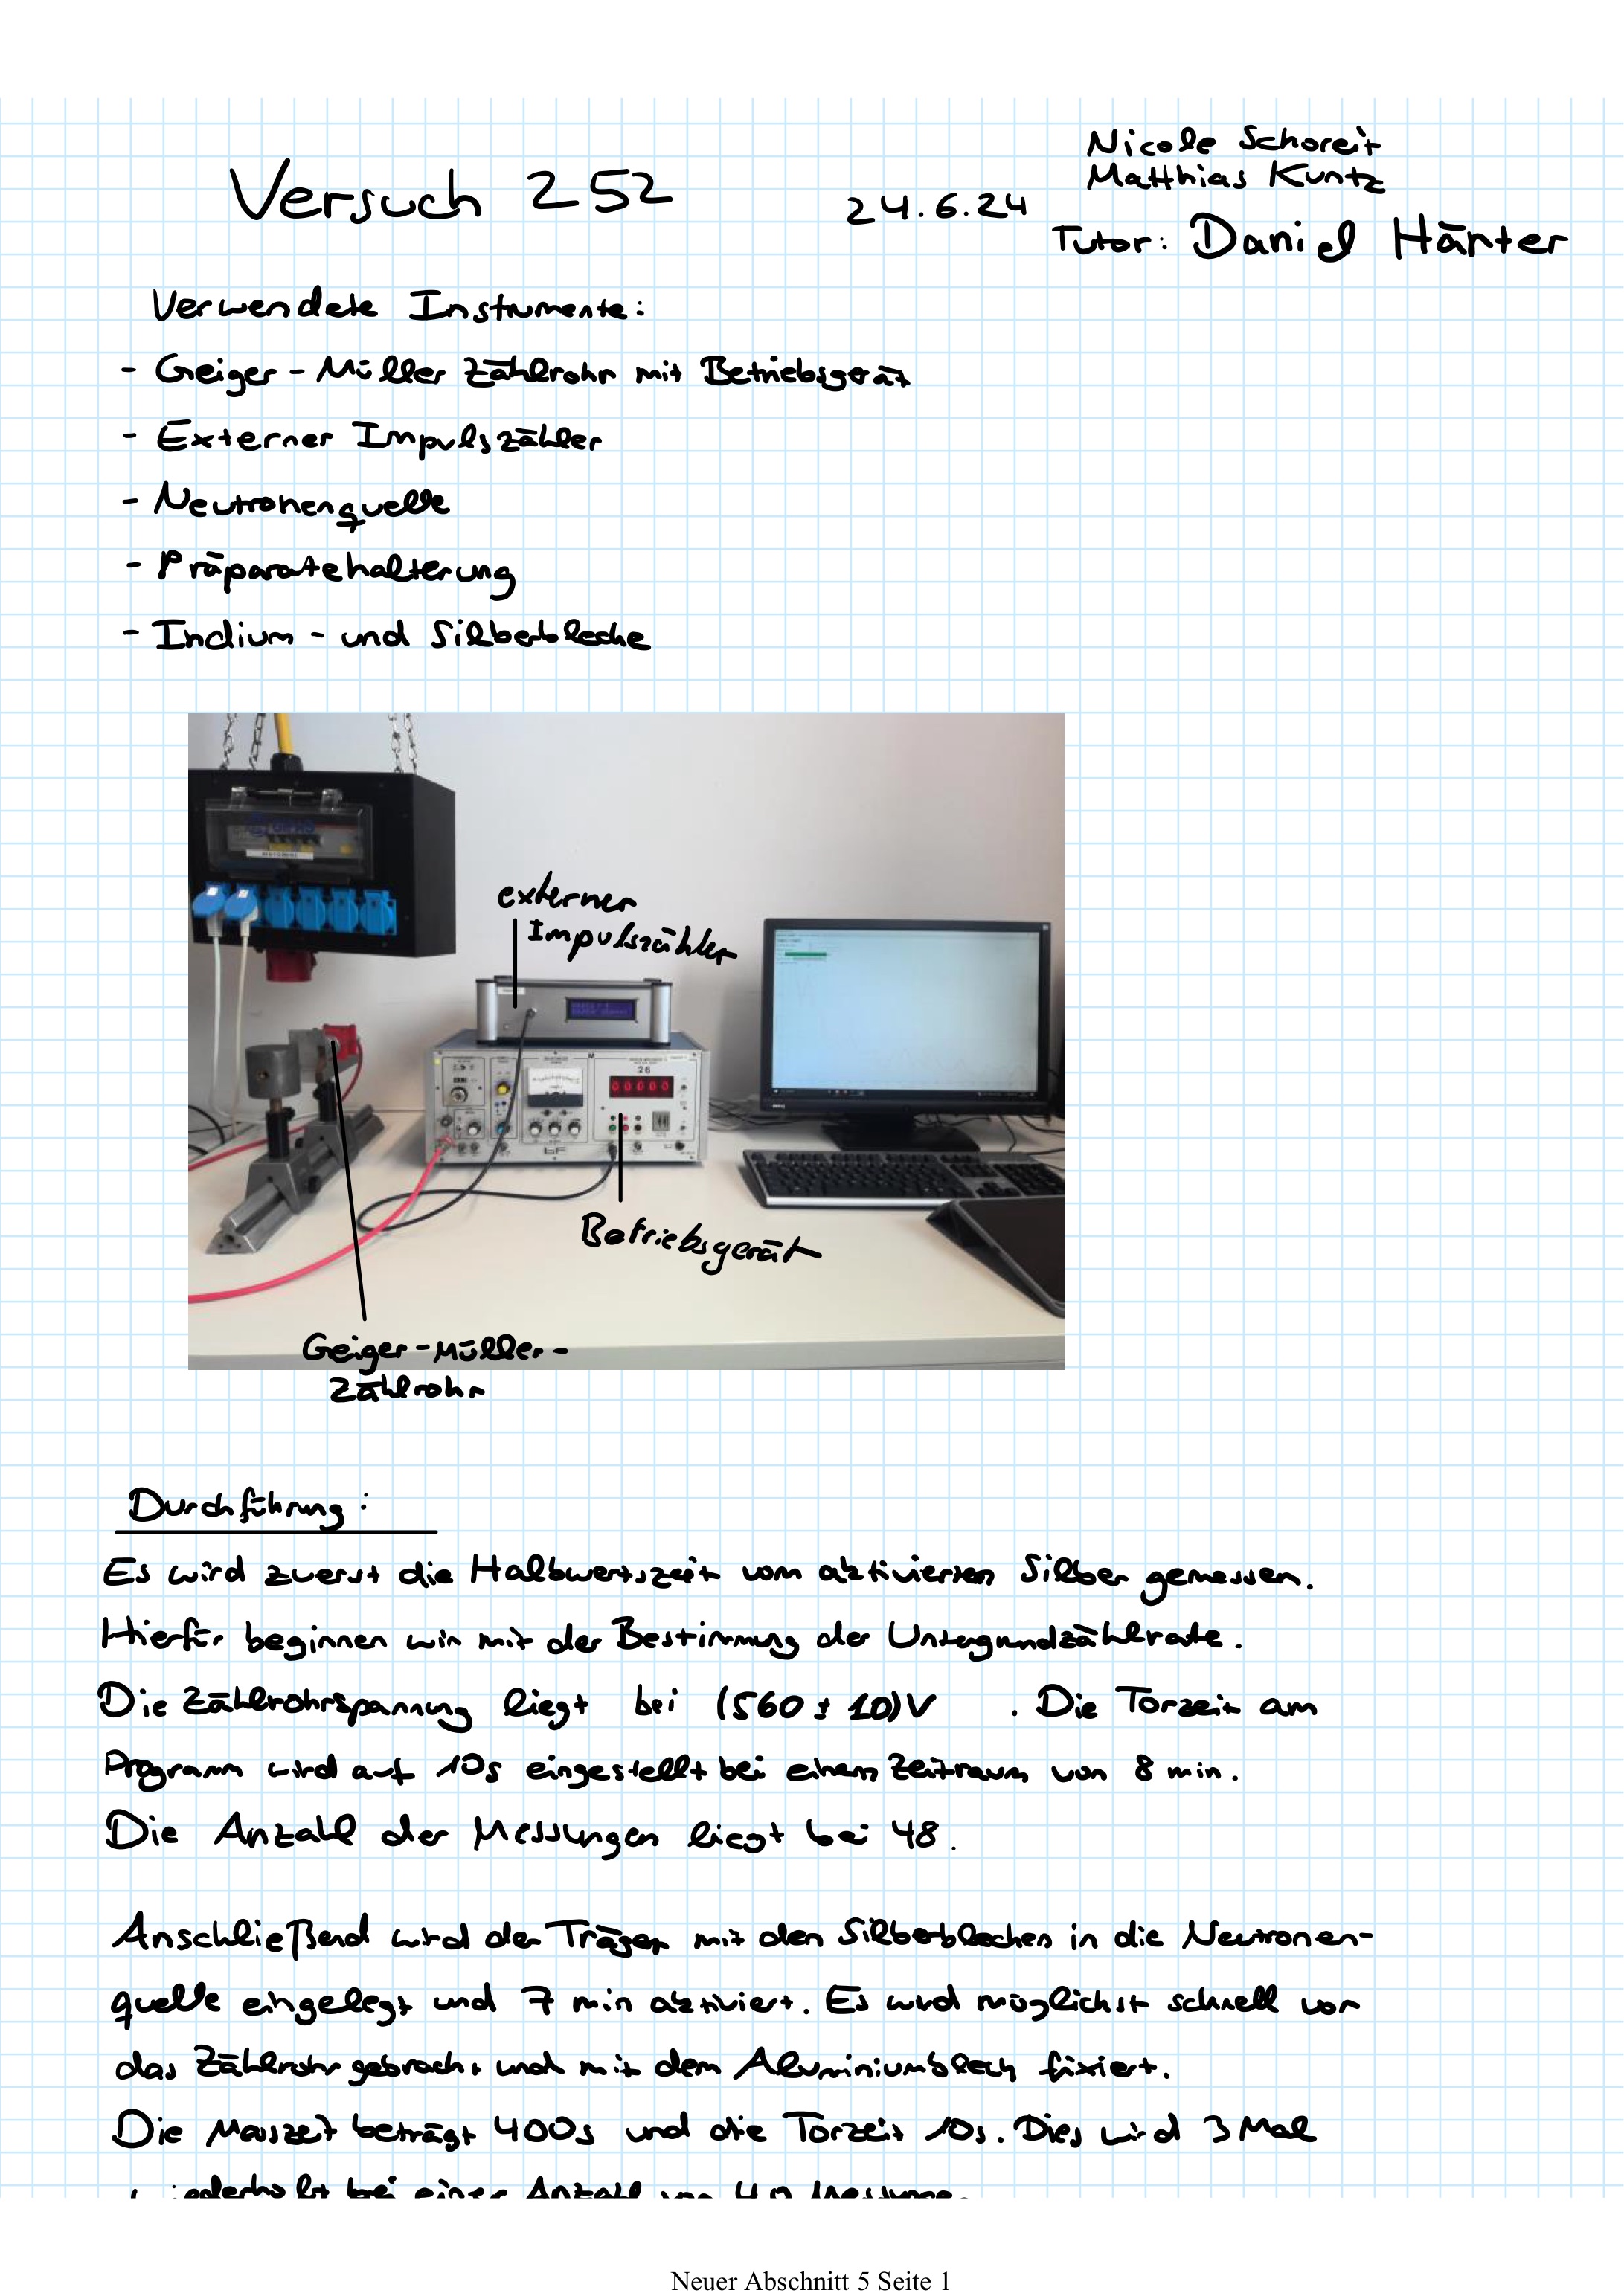 Nicole Schoreit
Matthias Kuntz
Versuch 252
24.6.24
Tutor: Daniel Hänter
Verwendete Instrumente:
- Geiger-Müller Zählrohr mit Betriebsgerät
- Externer Impulszähler
- Neutronenquelle
- Präparatehalterung
- Indium- und Silberbleche
externer
Impulszähler
26
00000
Betriebsgerät
Geiger-Müller-
Zählrohr
Durchführung:
Es wird zuerst die Halbwertszeit vom aktivierten Silber gemessen.
Hierfür beginnen wir mit der Bestimmung der Untergrundzählrate.
Die Zählrohrspannung liegt bei (560 ± 10)V . Die Torzeit am
Programm wird auf 10s eingestellt bei einem Zeitraum von 8 min.
Die Anzahl der Messungen liegt bei 48.
Anschließend wird der Träger mit den Silberblechen in die Neutronen-
quelle eingelegt und 7 min aktiviert. Es wird möglichst schnell vor
das Zählrohr gebracht und mit dem Aluminiumblech fixiert.
Die Messzeit beträgt 400s und die Torzeit 10s. Dies wird 3 Mal
wiederholt bei einer Anzahl von 40 Messungen
Neuer Abschnitt 5 Seite 1